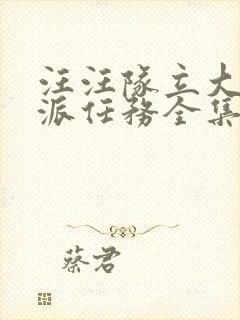 汪汪隊立大
派任務全集
蔡君